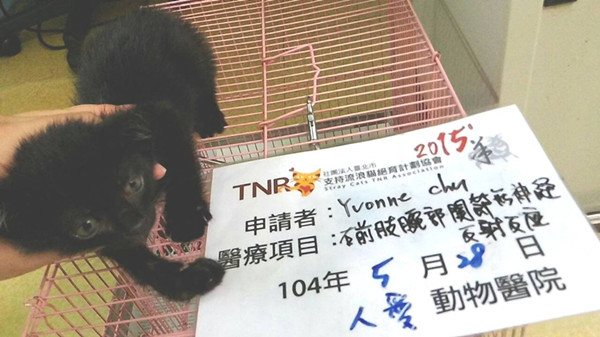 2015年
TNR 社團法人臺北市
支持流浪貓絕育計劃協會
Stray Cats TNR Association
申請者：Yvonne Chu
醫療項目：右前肢腕部關節於神經
反射反應
104年 5月28日
人愛 動物醫院